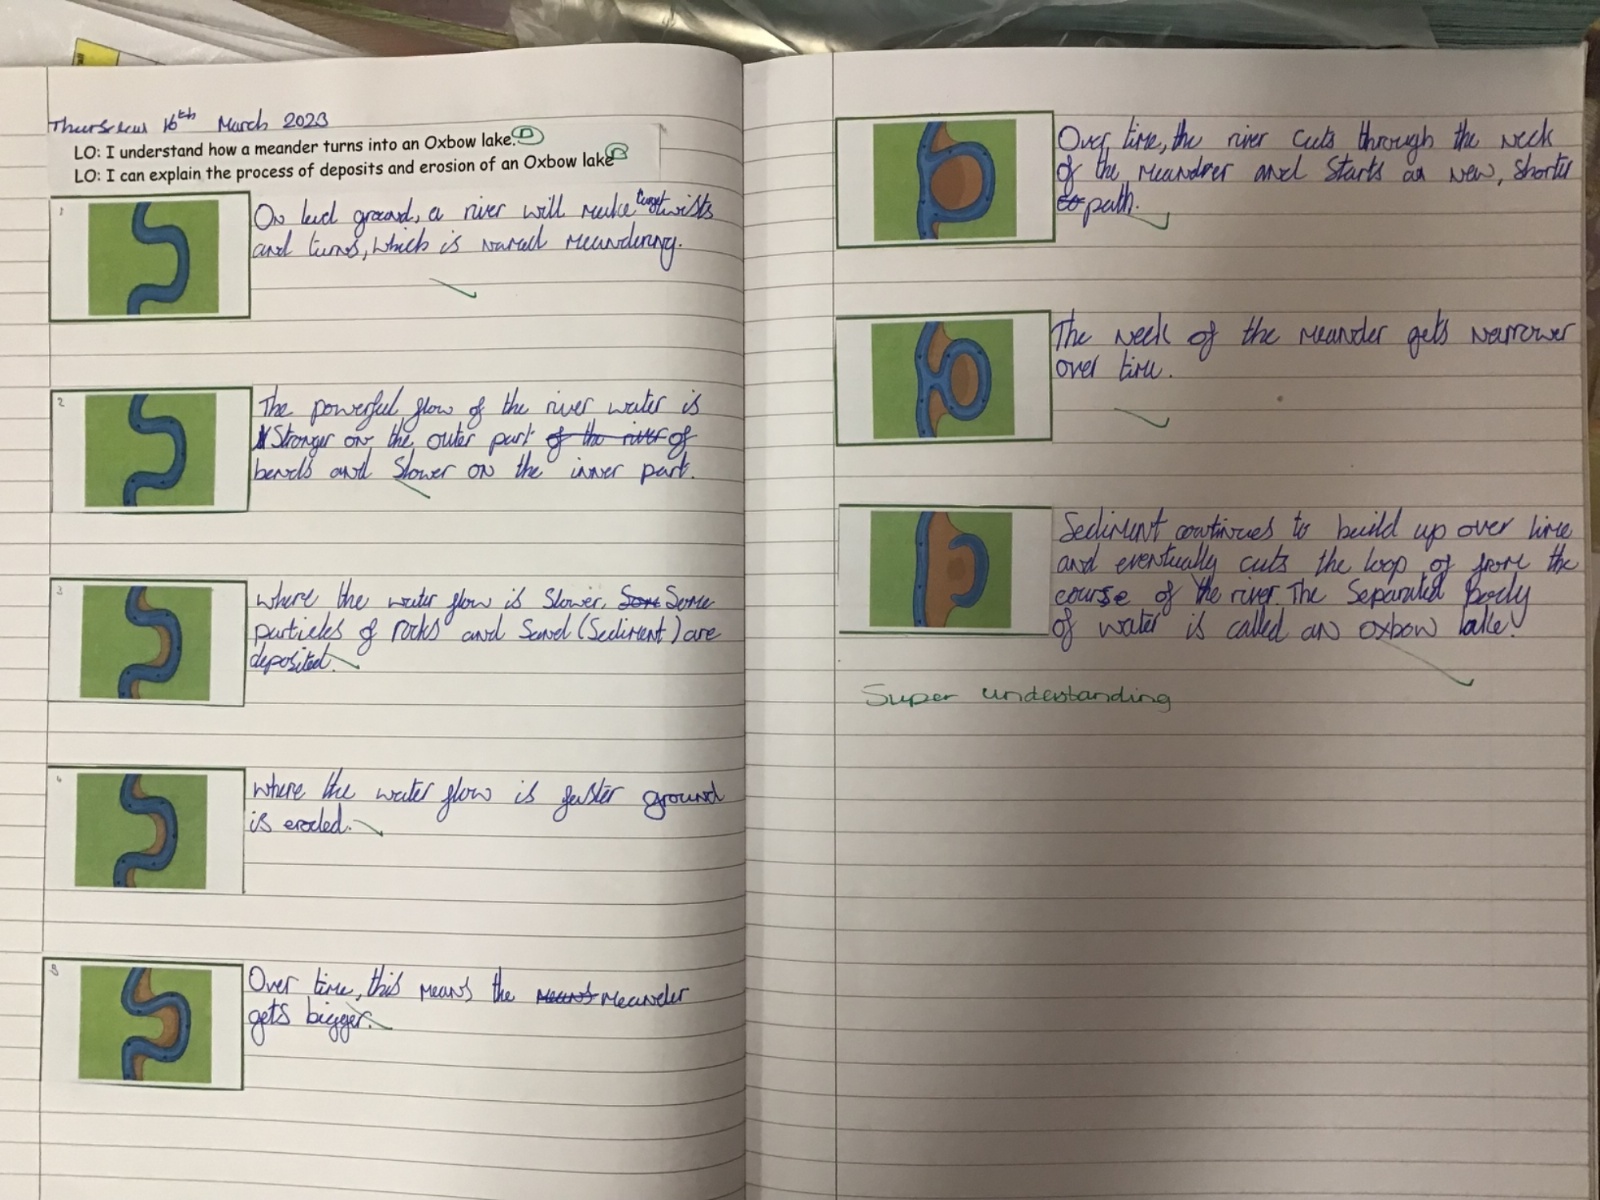 Thursday 16th March 2023
LO: I understand how a meander turns into an Oxbow lake. D
LO: I can explain the process of deposits and erosion of an Oxbow lake
1
On level ground, a river will make twists
and turns, which is named meandering.
2
The powerful flow of the river water is
Stronger on the outer part of the river of
bends and Slower on the inner part.
3
where the water flow is Slower, Some Some
particles of rocks and Sand (Sediment) are
deposited.
4
where the water flow is faster ground
is eroded.
5
Over time, this means the means meander
gets bigger.
Over time, the river cuts through the neck
of the meandrer and Starts a new, shorter
path.
The neck of the meander gets narrower
over time.
Sediment continues to build up over time
and eventually cuts the loop of from the
course of the river. The Separated body
of water is called an oxbow lake!
Super understanding